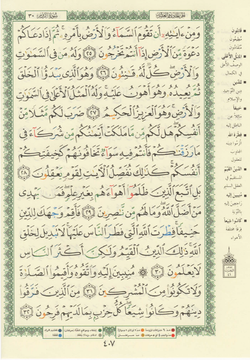 سُورَةُ الرُّومِ ٣٠
وَمِنْ ءَايَٰتِهِۦٓ أَن تَقُومَ ٱلسَّمَآءُ وَٱلْأَرْضُ بِأَمْرِهِۦ ثُمَّ إِذَا دَعَاكُمْ
دَعْوَةً مِّنَ ٱلْأَرْضِ إِذَآ أَنتُمْ تَخْرُجُونَ ٢٥ وَلَهُۥ مَن فِى ٱلسَّمَٰوَٰتِ
وَٱلْأَرْضِ كُلٌّ لَّهُۥ قَٰنِتُونَ ٢٦ وَهُوَ ٱلَّذِى يَبْدَؤُا۟ ٱلْخَلْقَ
ثُمَّ يُعِيدُهُۥ وَهُوَ أَهْوَنُ عَلَيْهِ وَلَهُ ٱلْمَثَلُ ٱلْأَعْلَىٰ فِى ٱلسَّمَٰوَٰتِ
وَٱلْأَرْضِ وَهُوَ ٱلْعَزِيزُ ٱلْحَكِيمُ ٢٧ ضَرَبَ لَكُم مَّثَلًا مِّنْ
أَنفُسِكُمْ هَل لَّكُم مِّن مَّا مَلَكَتْ أَيْمَٰنُكُم مِّن شُرَكَآءَ فِى
مَا رَزَقْنَٰكُمْ فَأَنتُمْ فِيهِ سَوَآءٌ تَخَافُونَهُمْ كَخِيفَتِكُمْ
أَنفُسَكُمْ كَذَٰلِكَ نُفَصِّلُ ٱلْءَايَٰتِ لِقَوْمٍ يَعْقِلُونَ ٢٨
بَلِ ٱتَّبَعَ ٱلَّذِينَ ظَلَمُوٓا۟ أَهْوَآءَهُم بِغَيْرِ عِلْمٍ فَمَن يَهْدِى
مَنْ أَضَلَّ ٱللَّهُ وَمَا لَهُم مِّن نَّٰصِرِينَ ٢٩ فَأَقِمْ وَجْهَكَ لِلدِّينِ
حَنِيفًا فِطْرَتَ ٱللَّهِ ٱلَّتِى فَطَرَ ٱلنَّاسَ عَلَيْهَا لَا تَبْدِيلَ لِخَلْقِ
ٱللَّهِ ذَٰلِكَ ٱلدِّينُ ٱلْقَيِّمُ وَلَٰكِنَّ أَكْثَرَ ٱلنَّاسِ
لَا يَعْلَمُونَ ٣٠ مُنِيبِينَ إِلَيْهِ وَٱتَّقُوهُ وَأَقِيمُوا۟ ٱلصَّلَوٰةَ
وَلَا تَكُونُوا۟ مِنَ ٱلْمُشْرِكِينَ ٣١ مِنَ ٱلَّذِينَ فَرَّقُوا۟
دِينَهُمْ وَكَانُوا۟ شِيَعًا كُلُّ حِزْبٍۭ بِمَا لَدَيْهِمْ فَرِحُونَ ٣٢
٤٠٧